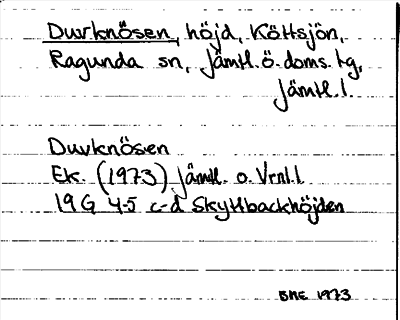 Duvrknösen, höjd, Köttsjön,
Ragunda sn, Jämtl. ö. doms. tg,
Jämtl. l.
Duvknösen
Ek. (1973) Jämtl. o. Vrnl. l.
19G 4-5 c-d Skyttbackhöjden
BME 1973